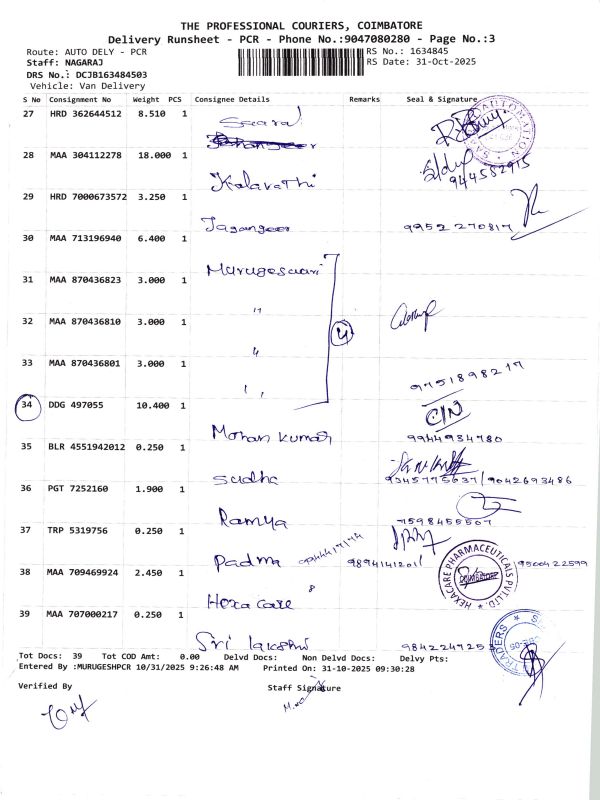 THE PROFESSIONAL COURIERS, COIMBATORE
Delivery Runsheet - PCR - Phone No.:9047080280 - Page No.:3
Route: AUTO DELY - PCR RS No.: 1634845
Staff: NAGARAJ RS Date: 31-Oct-2025
DRS No.: DCJB163484503
Vehicle: Van Delivery
S No Consignment No Weight PCS Consignee Details Remarks Seal & Signature
27 HRD 362644512 8.510 1
28 MAA 304112278 18.000 1
Kalavathi
29 HRD 7000673572 3.250 1
Jagangeer 9952270817
30 MAA 713196940 6.400 1
Murugesaari
31 MAA 870436823 3.000 1
"
32 MAA 870436810 3.000 1
4
"
33 MAA 870436801 3.000 1
9751898217
"
34 DDG 497055 10.400 1
Mohan kumar 9944934780
35 BLR 4551942012 0.250 1
Sudha 9345775637/9042693486
36 PGT 7252160 1.900 1
Ramya 7598455507
37 TRP 5319756 0.250 1
Padma 9894141201/ 9500422599
38 MAA 709469924 2.450 1
HEXACARE PHARMACEUTICALS PVT.LTD.
COIMBATORE
Hexa care
39 MAA 707000217 0.250 1
TRADERS
Sri lakshmi
Tot Docs: 39 Tot COD Amt: 0.00 Delvd Docs: Non Delvd Docs: Delvy Pts:
Entered By :MURUGESHPCR 10/31/2025 9:26:48 AM Printed On: 31-10-2025 09:30:28
Verified By Staff Signature